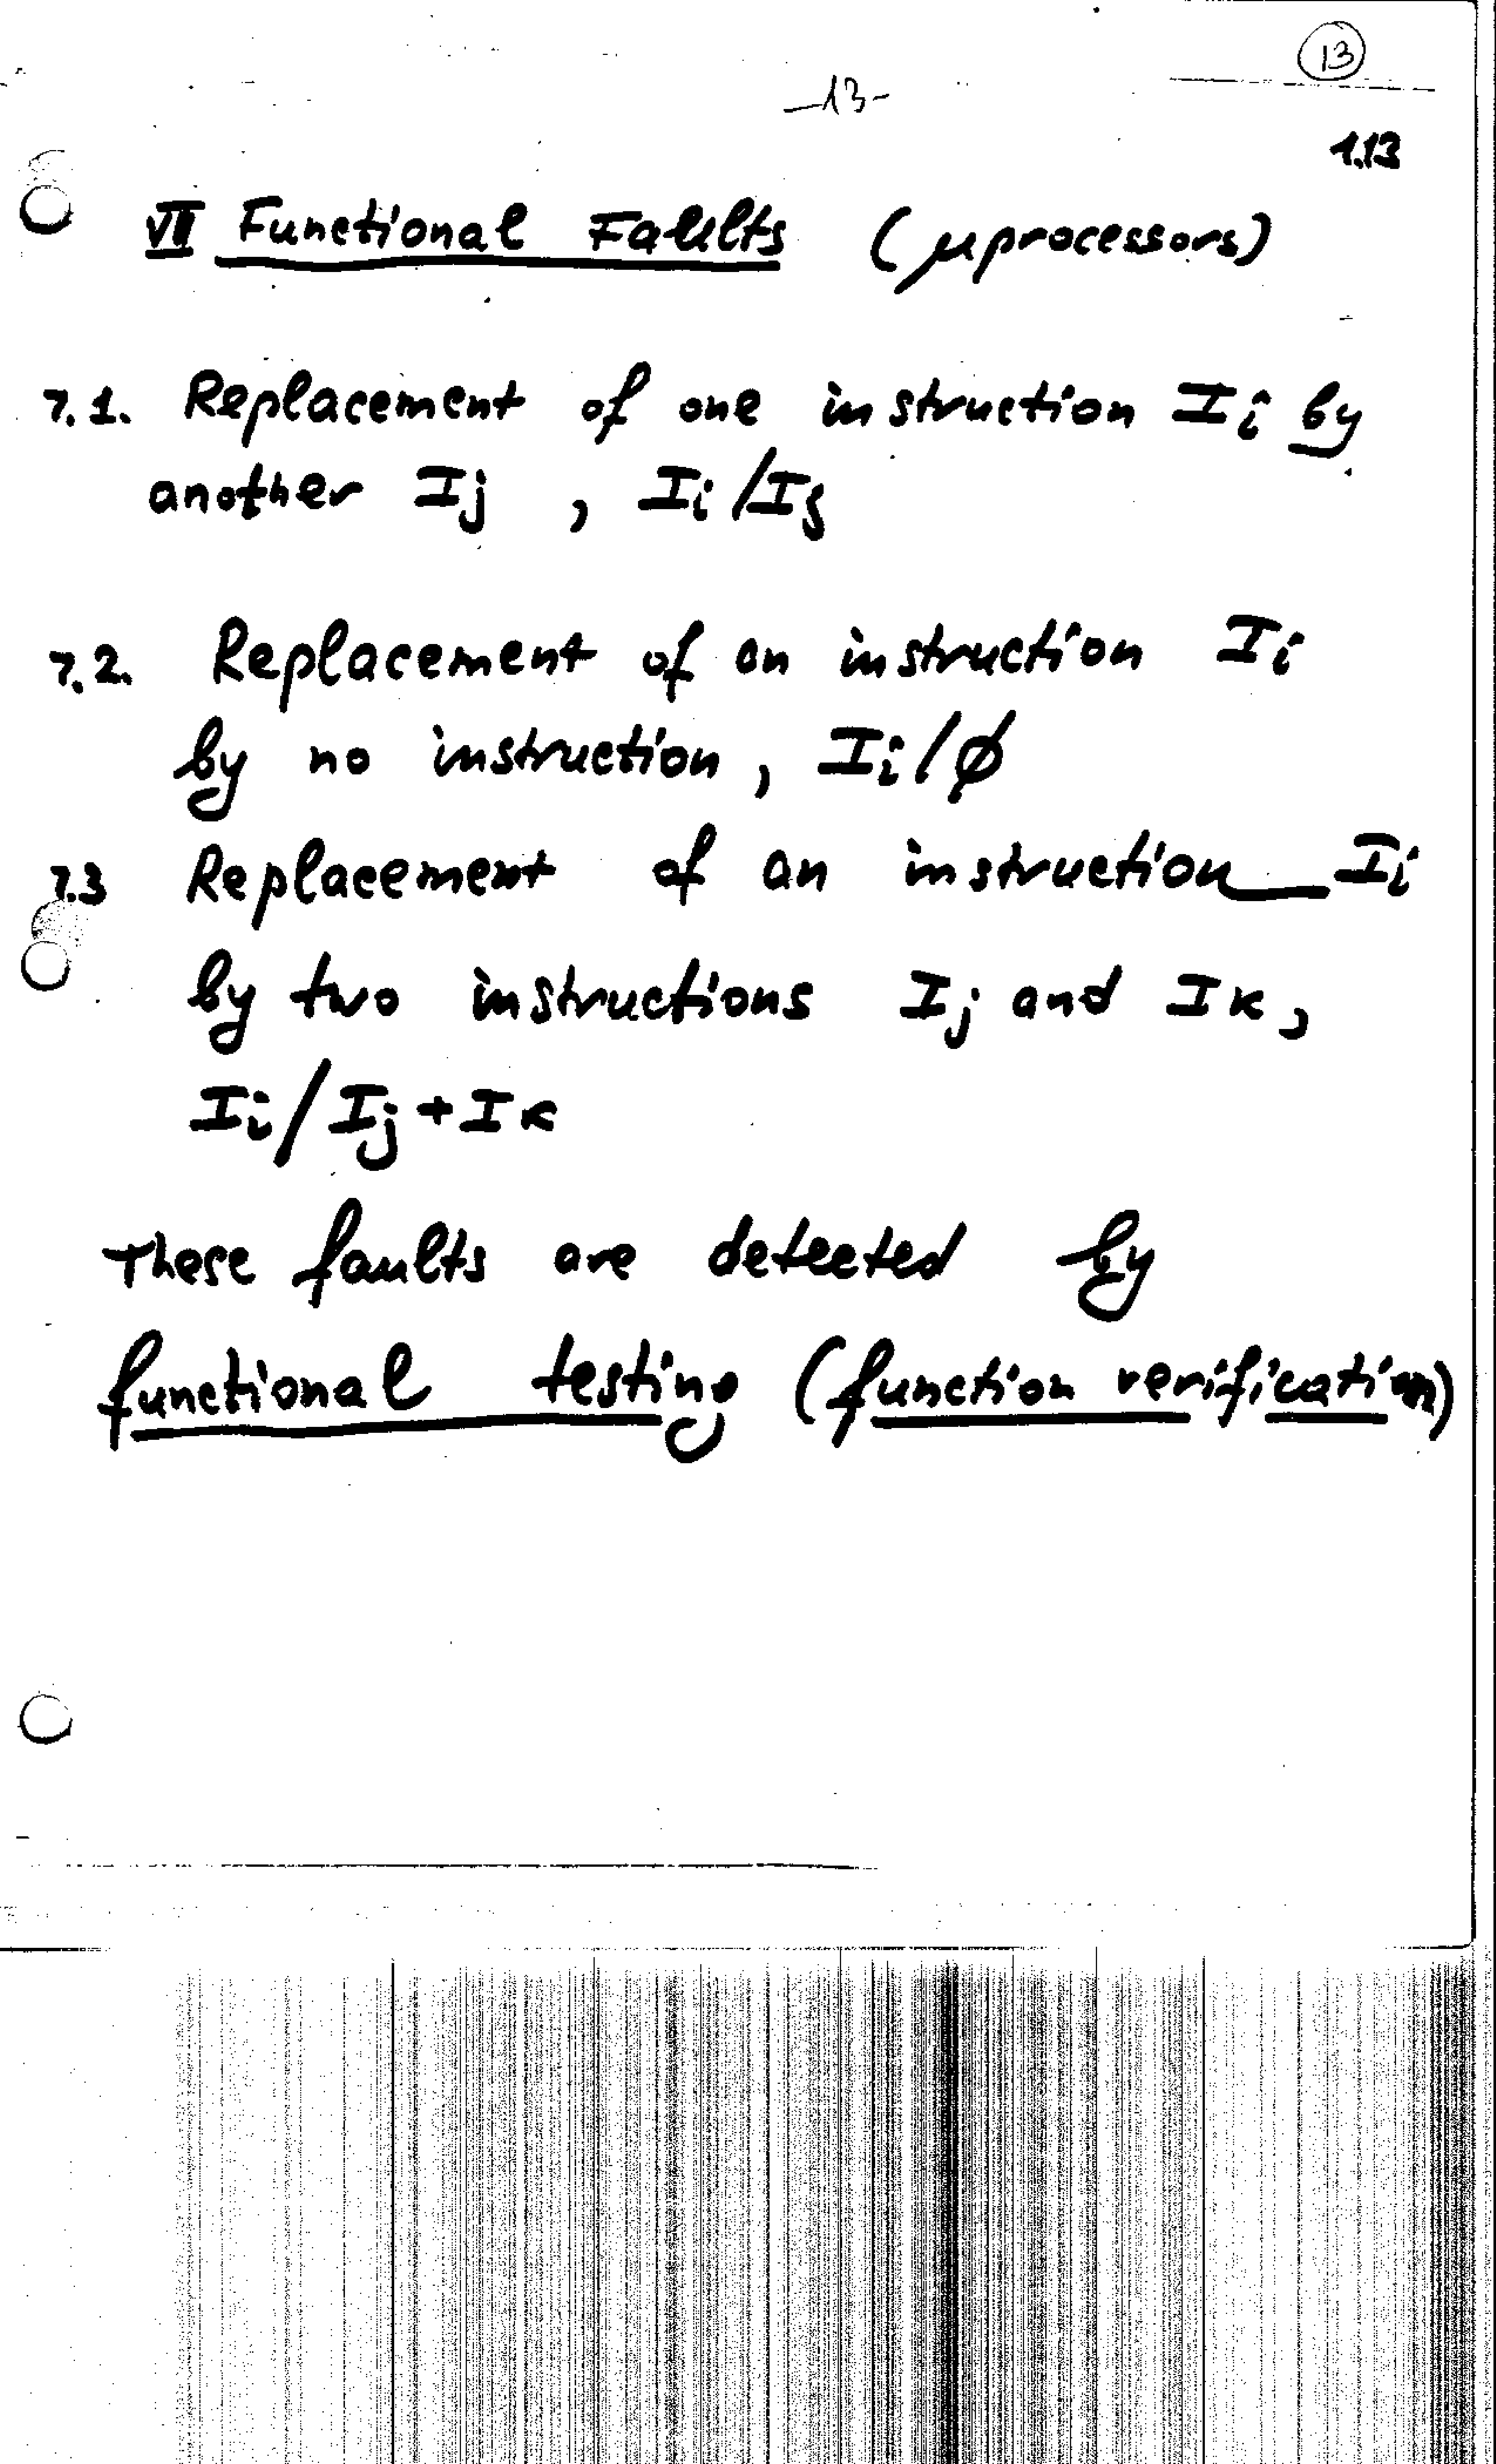 13
-13-
1.13
VII Functional Faults (μprocessors)
7.1. Replacement of one instruction Ii by
another Ij , Ii/Ij
7.2. Replacement of an instruction Ii
by no instruction, Ii/ø
7.3 Replacement of an instruction Ii
by two instructions Ij and Ik,
Ii/Ij+Ik
These faults are detected by
functional testing (function verification)